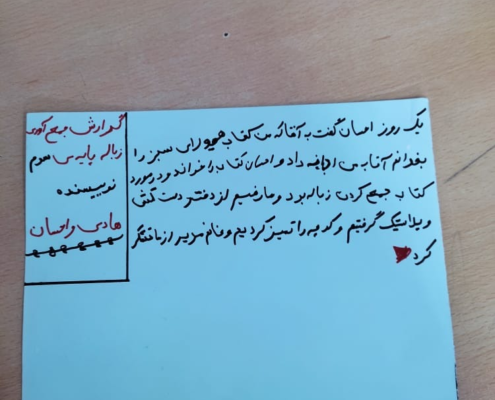 گزارش جمع آوری
زباله پایه ی سوم
نویسنده
هادی و احسان
یک روز احسان گفت به آقا که من کتاب هیولای سبز را
بخوانم آقا به من اجازه داد و احسان کتاب را خواند و در مورد
کتاب جمع کردن زباله بود و ما رفتیم از دفتر دست کش
و پلاستیک گرفتیم و کوچه را تمیز کردیم و خانم مدیر از ما تشکر
کرد